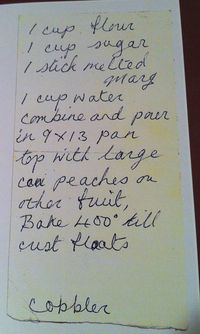 1 cup flour
1 cup sugar
1 stick melted
marg
1 cup water
combine and pour
in 9x13 pan
top with large
can peaches or
other fruit,
Bake 400° till
crust floats
Cobbler